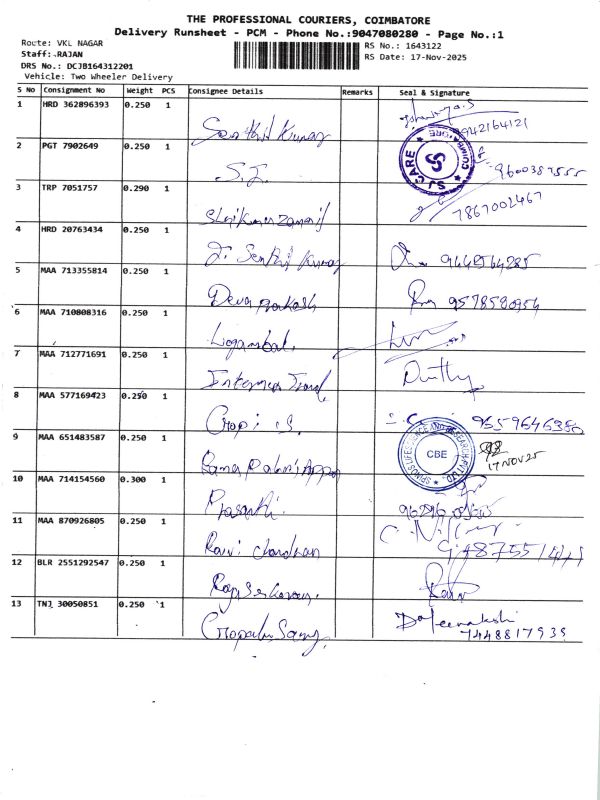 THE PROFESSIONAL COURIERS, COIMBATORE
Delivery Runsheet - PCM - Phone No.:9047080280 - Page No.:1
Route: VKL NAGAR
Staff: RAJAN
DRS No.: DCJB164312201
Vehicle: Two Wheeler Delivery
RS No.: 1643122
RS Date: 17-Nov-2025
S No Consignment No Weight PCS Consignee Details Remarks Seal & Signature
1 HRD 362896393 0.250 1 Senthil Kumar 9942164121
2 PGT 7902649 0.250 1 S.J. SJ CARE COIMBATORE 9600387555
3 TRP 7051757 0.290 1 7867002467
4 HRD 20763434 0.250 1 J. Senthil Kumar
5 MAA 713355814 0.250 1 Deva prakash 9578590954
6 MAA 710808316 0.250 1 Logambal.
7 MAA 712771691 0.250 1
8 MAA 577169423 0.250 1 Gopi .S. 9659646980
9 MAA 651483587 0.250 1 CBE 17 NOV 25
10 MAA 714154560 0.300 1 Prasanth.
11 MAA 870926805 0.250 1 Ravi chandran
12 BLR 2551292547 0.250 1 Raja Sekaran.
13 TNJ 30050851 0.250 1 Gopalu Samy D. Meenakshi
7448817939